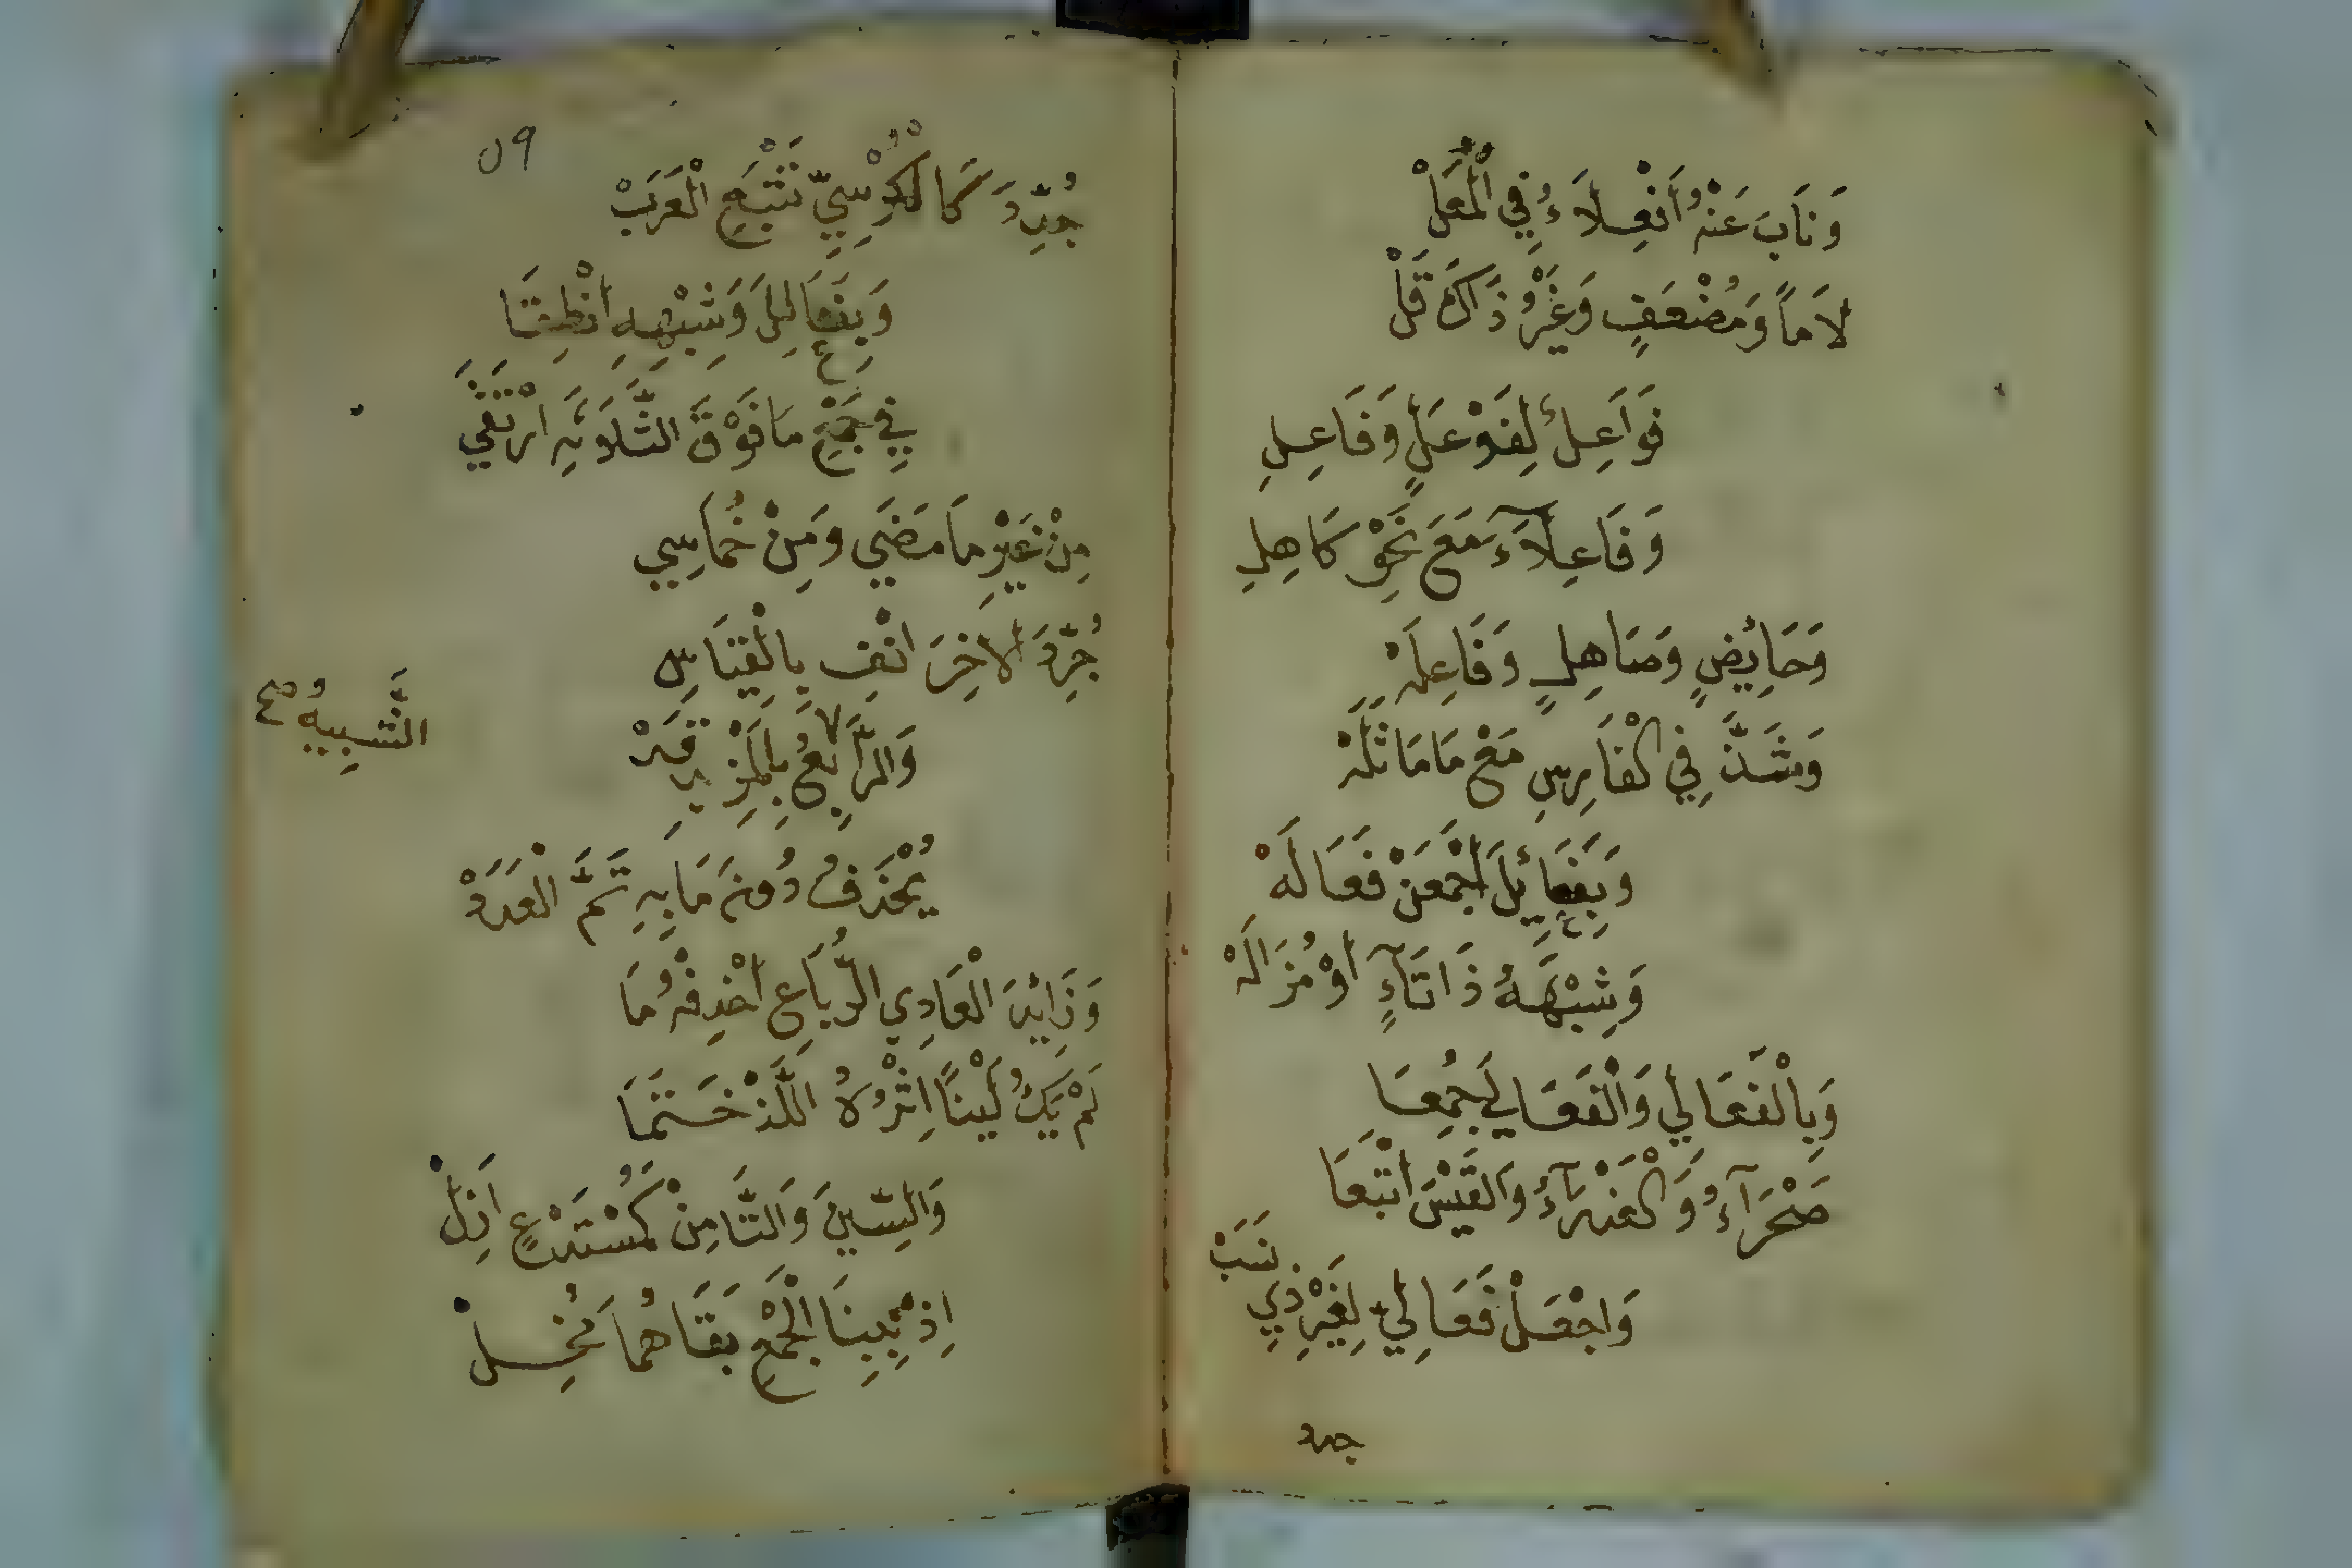 وَنَابَ عَنْهُ أَفْعِلَاءُ فِي الْمُعَلّْ
لَامًا وَمُضْعَفٍ وَغَيْرُ ذَاكَ قَلْ
فَوَاعِلُ لِفَوْعَلٍ وَفَاعِلِ
وَفَاعِلَآءَ مَعَ نَحْوِ كَاهِلِ
وَحَائِضٍ وَصَاهِلٍ وَفَاعِلَهْ
وَشَذَّ فِي الْفَارِسِ مَعْ مَا مَاثَلَهْ
وَبِفَعَائِلَ اجْمَعَنْ فَعَالَهْ
وَشِبْهَهُ ذَا تَآءٍ أَوْ مُزَالَهْ
وَبِالْفَعَالِي وَالْفَعَالَى جُمِعَا
صَحْرَآءُ وَالْعَذْرَآءُ وَالْقَيْسَ اتْبَعَا
وَاجْعَلْ فَعَالِيَّ لِغَيْرِ ذِي نَسَبْ
جدد
٥٩
جُدِّدَ كَالْكُرْسِيِّ تَتْبَعِ الْعَرَبْ
وَبِفَعَالِلَ وَشِبْهِهِ انْطِقَا
فِي جَمْعِ مَا فَوْقَ الثَّلَاثَةِ ارْتَقَى
مِنْ غَيْرِ مَا مَضَى وَمِنْ خُمَاسِي
جُرِّدَ الآخِرَ انْفِ بِالْقِيَاسِ
وَالرَّابِعُ بِالْمَزِيدِ قَدْ
التَّشبِيهُ صح
يُحْذَفُ دُونَ مَا بِهِ تَمَّ الْعَدَدْ
وَزَائِدَ الْعَادِي الرُّبَاعِ احْذِفْهُ مَا
لَمْ يَكُ لَيْنًا اِثْرُهُ اللَّذْ خَتَمَا
وَالسِّينَ وَالتَّا مِنْ كَمُسْتَدْعٍ أَزِلْ
اِذْ بِبِنَا الْجَمْعِ بَقَاهُمَا مُخِلْ